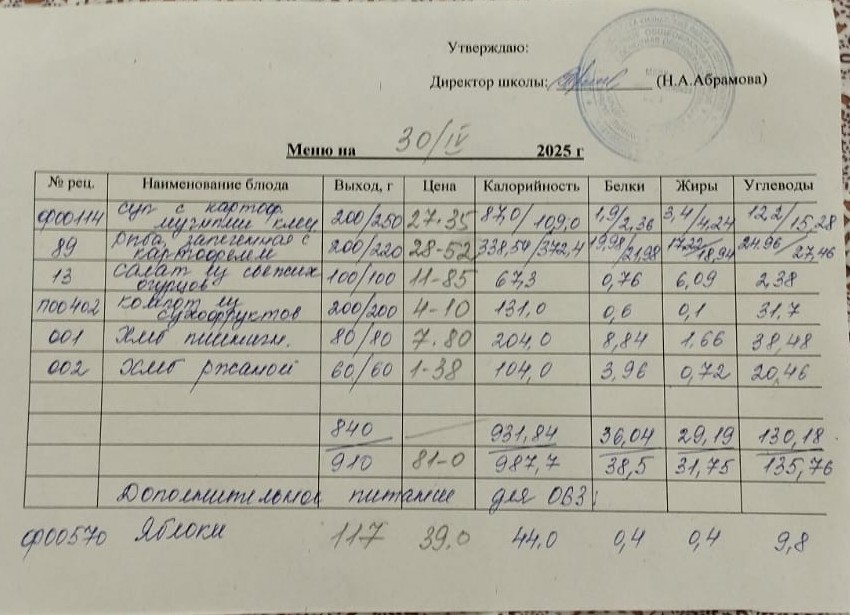 Утверждаю:
Директор школы: (Н.А.Абрамова)
Меню на 30/IV 2025 г
№ рец. Наименование блюда Выход, г Цена Калорийность Белки Жиры Углеводы
ф00114 суп с картоф. мучными клец 200/250 27-35 87,0/109,0 1,9/2,36 3,4/4,24 12,2/15,28
89 рыба, запеченная с картофелем 200/220 28-52 338,54/372,4 19,98/21,98 17,22/18,94 24.96/27,46
13 Салат из свежих огурцов 100/100 11-85 67,3 0,76 6,09 2,38
п00402 компот из сухофруктов 200/200 4-10 131,0 0,6 0,1 31,7
001 Хлеб пшеничн. 80/80 7.80 204,0 8,84 1,66 38,48
002 Хлеб ржаной 60/60 1-38 104,0 3,96 0,72 20,46
840 931,84 36,04 29,19 130,18
910 81-0 987,7 38,5 31,75 135,76
Дополнительное питание для ОВЗ:
ф00570 Яблоки 117 39.0 44,0 0,4 0,4 9,8